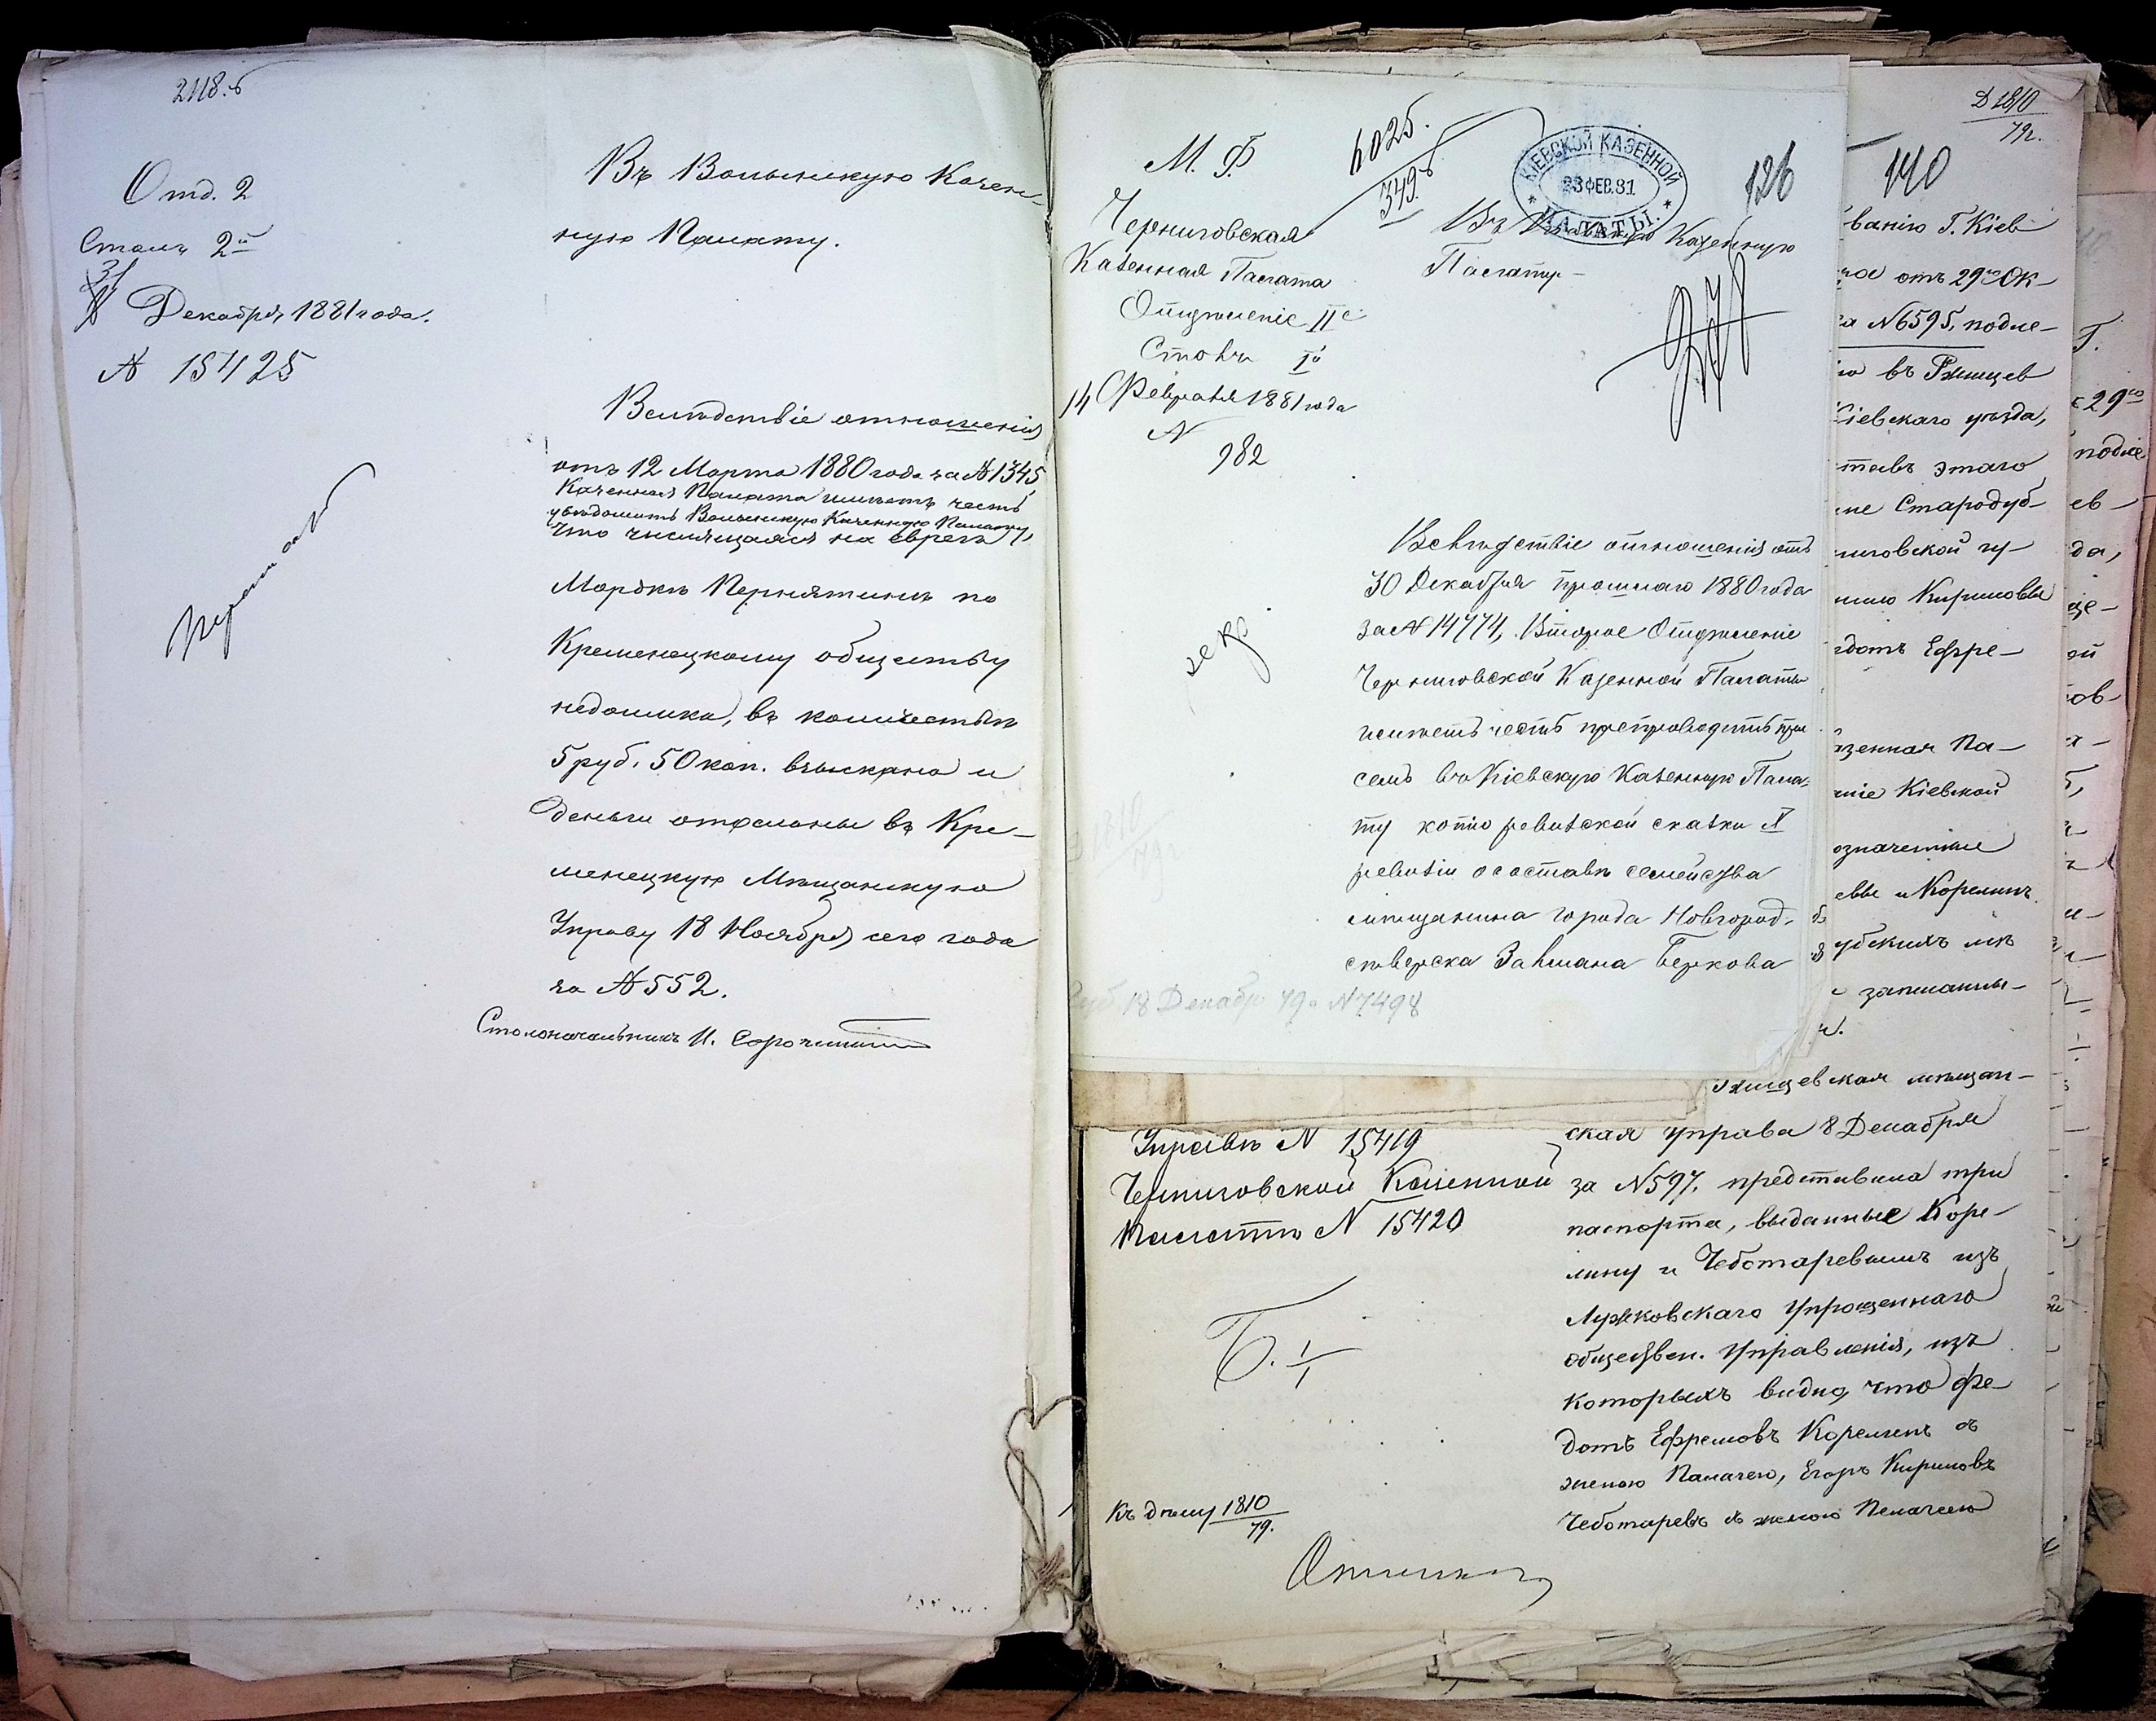 2118.б
Отд. 2
Столъ 2й
31
Декабря 1881 года.
№ 15425
Въ Волынскую Казен-
ную Палату.
Вслѣдствіе отношенія
отъ 12 Марта 1880 года за № 1345,
Казенная Палата имѣетъ честь
увѣдомить Волынскую Казенную Палату,
что числящаяся на евреѣ
Мордкѣ Пернятинѣ по
Кременецкому обществу
недоимка, въ количествѣ
5 руб. 50 коп. взыскана и
деньги отосланы въ Кре-
менецкую Мѣщанскую
Управу 18 Ноября сего года
за № 552.
Столоначальникъ И.
М. Ф.
Черниговская
Казенная Палата
Отдѣленіе IIе
Столъ Iй
14 Февраля 1881 года
№
982
6025.
349б
КІЕВСКОЙ КАЗЕННОЙ
23 ФЕВ. 81
ПАЛАТЫ.
126
Въ Кіевскую Казенную
Палату
Вслѣдствіе отношенія отъ
30 Декабря прошлаго 1880 года
за № 14774, Второе Отдѣленіе
Черниговской Казенной Палаты
имѣетъ честь препроводить при
семъ въ Кіевскую Казенную Пала-
ту копію ревизской сказки X
ревизіи о составѣ семейства
мѣщанина города Новгород-
сѣверска Залмана Беркова
18 Декабр 79 № 7498
Д 1810
79г.
140
ванію Г. Кіев
отъ 29го Ок-
№ 6595, подле-
въ Ржищев
Кіевскаго уѣзда,
этаго
Стародуб-
ниговской гу-
Кириловы
Ефре-
зенная Па-
ніе Кіевской
означенные
евы и Корелинъ
убскихъ мѣ
записаны-
Ржищевская мѣщан-
ская управа 8 Декабря
за № 597, представила три
паспорта, выданные Коре-
лину и Чеботаревымъ изъ
Лужковскаго Упрощеннаго
обществен. Управленія, изъ
которыхъ видно, что Фе-
дотъ Ефремовъ Корелинъ съ
женою Палагею, Егоръ Кириловъ
Чеботаревъ съ женою Пелагеею
Управѣ № 15419
Черниговской Казенной
Палатѣ № 15420
Къ дѣлу 1810
79.